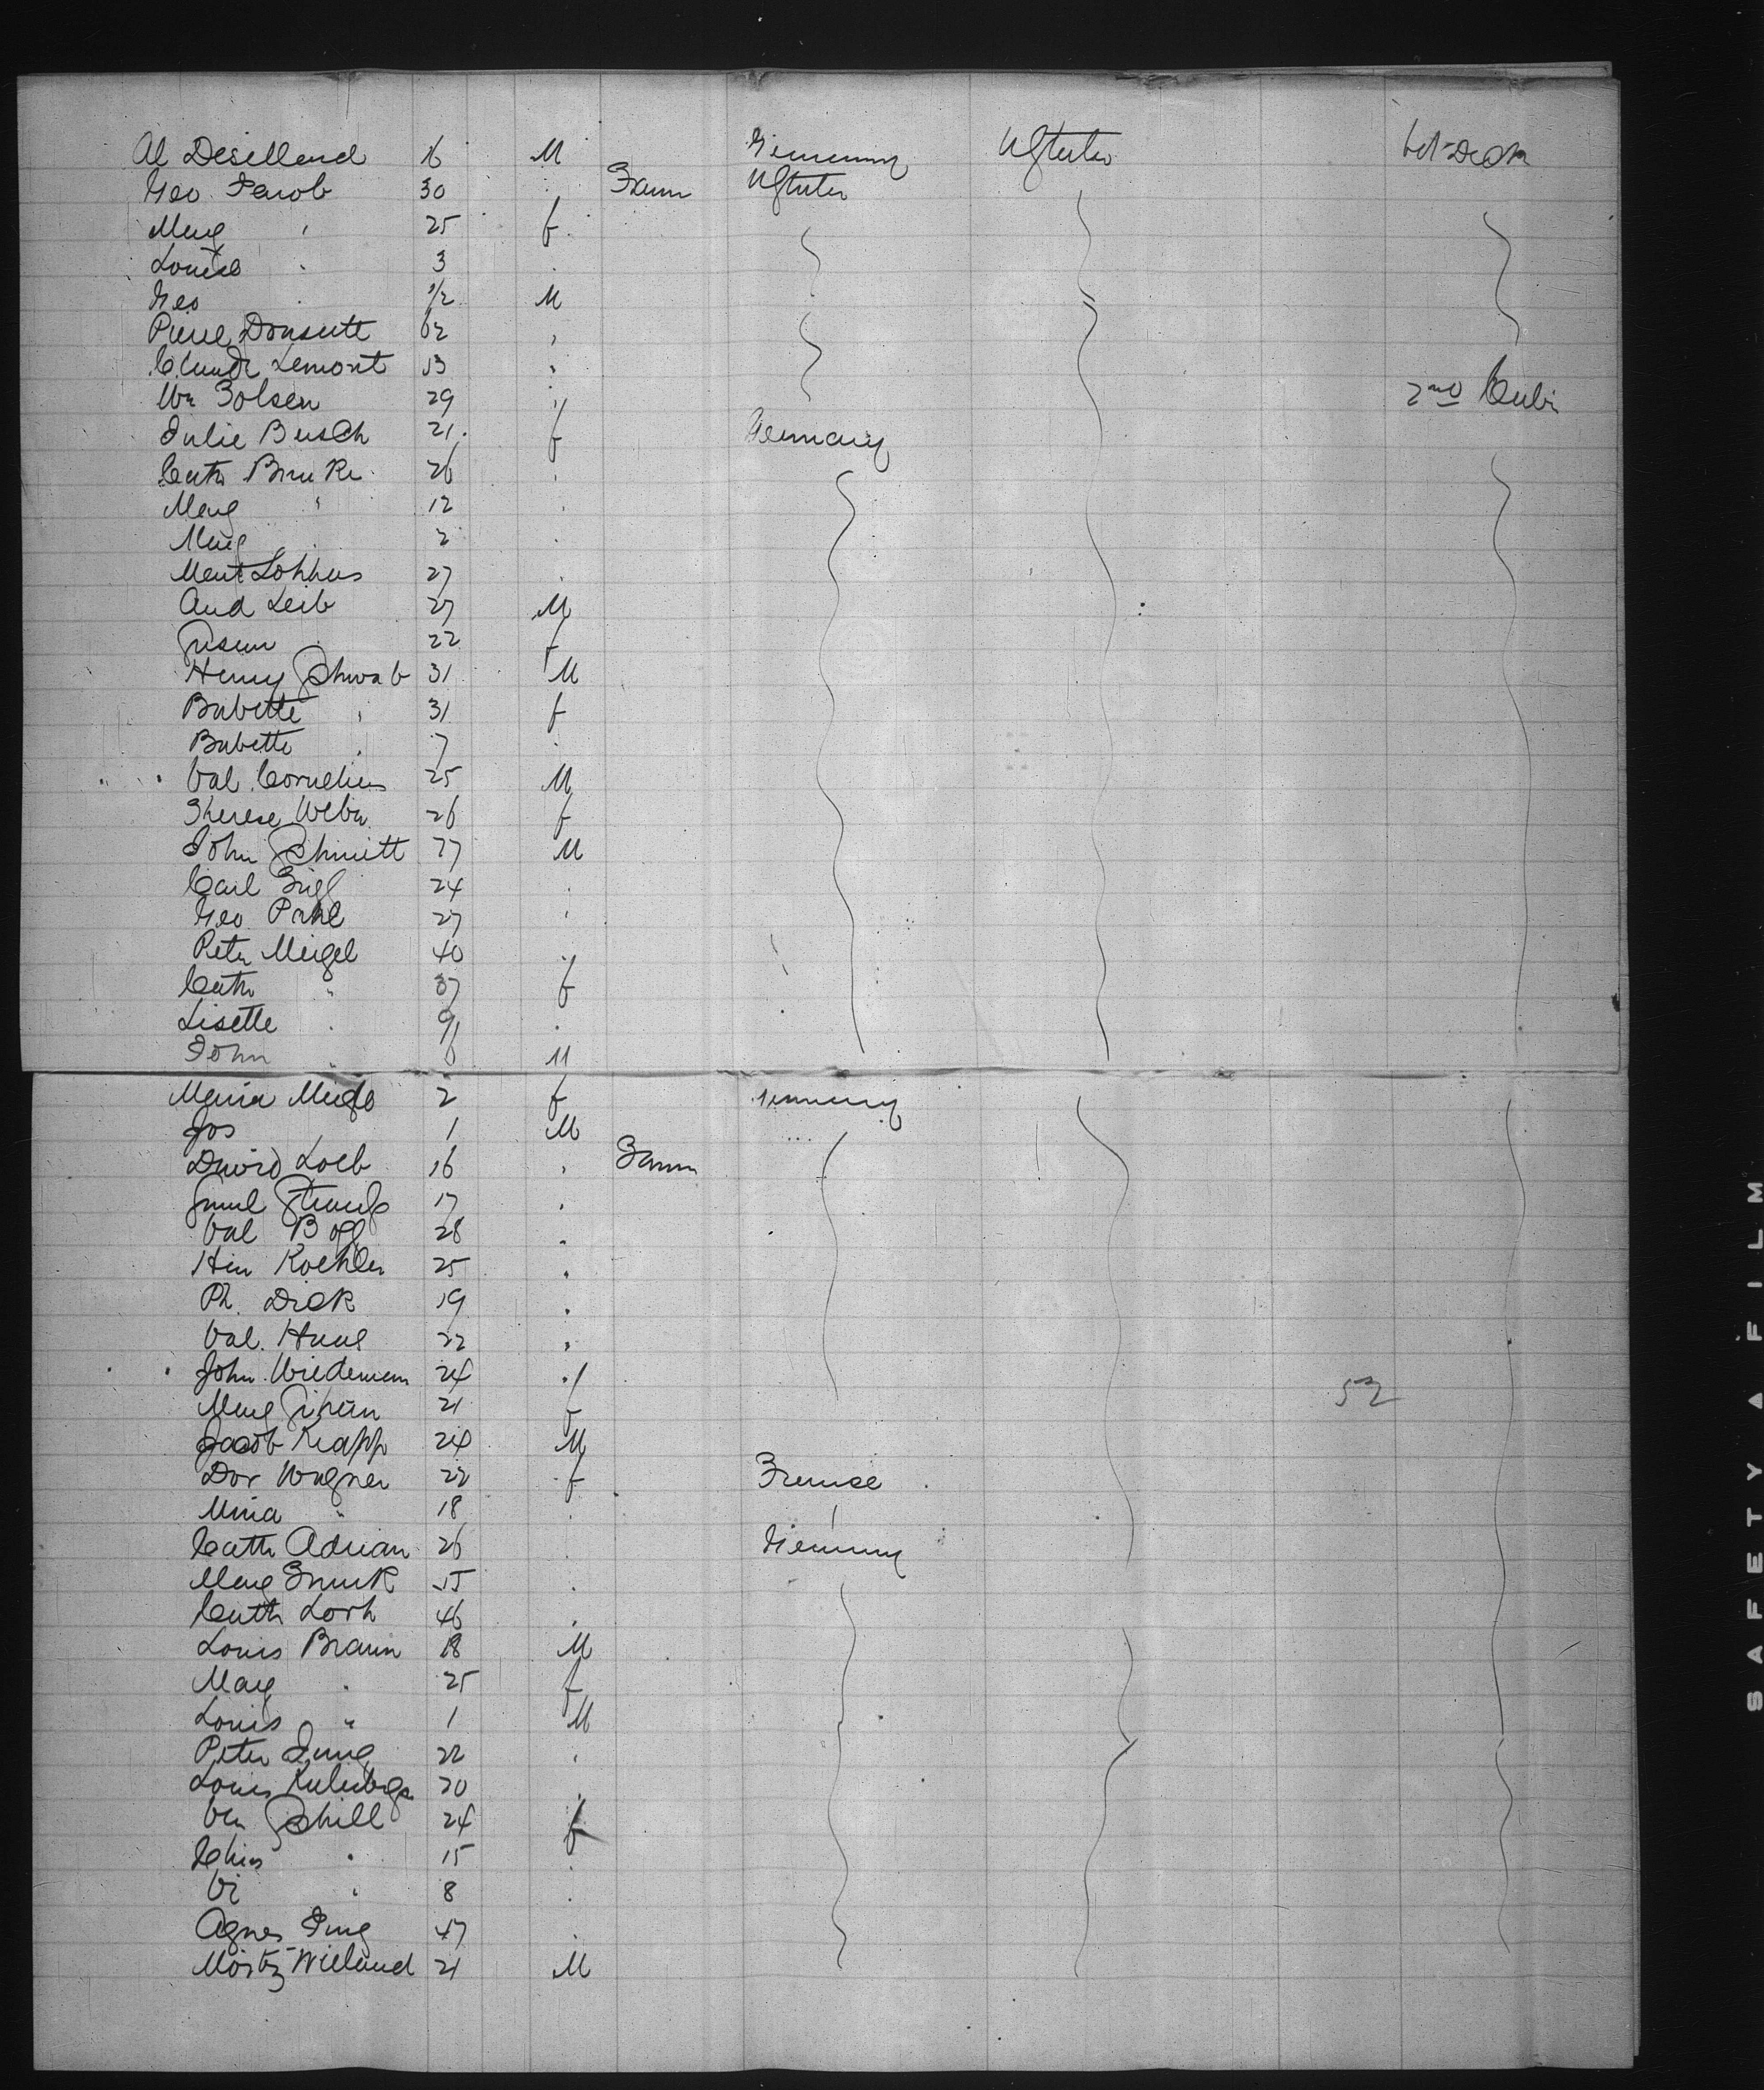 Al Desellend 16 M Germany UStates bet Deck
Geo Jacob 30 Farm UStates
Marg " 25 f
Louise " 3
Geo " 1/2 M
Pierre 62
Claude Lemont 53
Wm Folsen 29 2nd Cabi
Julie Busch 21 f Germany
Cath 26
Marg " 12
Marg 2
27
And Leib 27 M
Susan 22 f
Henry Schwab 31 M
Babette " 31 f
Babette " 7
Val. Cornelius 25 M
Therese Weber 26 f
John Schmitt 27 M
Carl 24
Geo Pahl 27
Peter Meigel 40
Cath " 37 f
Lisette " 9
John " 6 M
Maria 2 f Germany
Jos 1 M
David Loeb 16 Farm
17
Val 28
Hen Koehler 25
Ph. Dick 19
Val. Haas 22
John Wiedemann 24
Marg 21 f 52
Jacob Knapp 24 M
Dor Wagner 22 f France
Mina " 18
Cath Adrian 26 Germany
Marg Frank 55
Cath 46
Louis Braun 28 M
Mary " 25 f
Louis " 1 M
Peter Jung 22
Louis 20
Schill 24 f
Chris " 15
" 8
Agnes Jung 47
Moritz Wieland 21 M
SAFETY A FILM